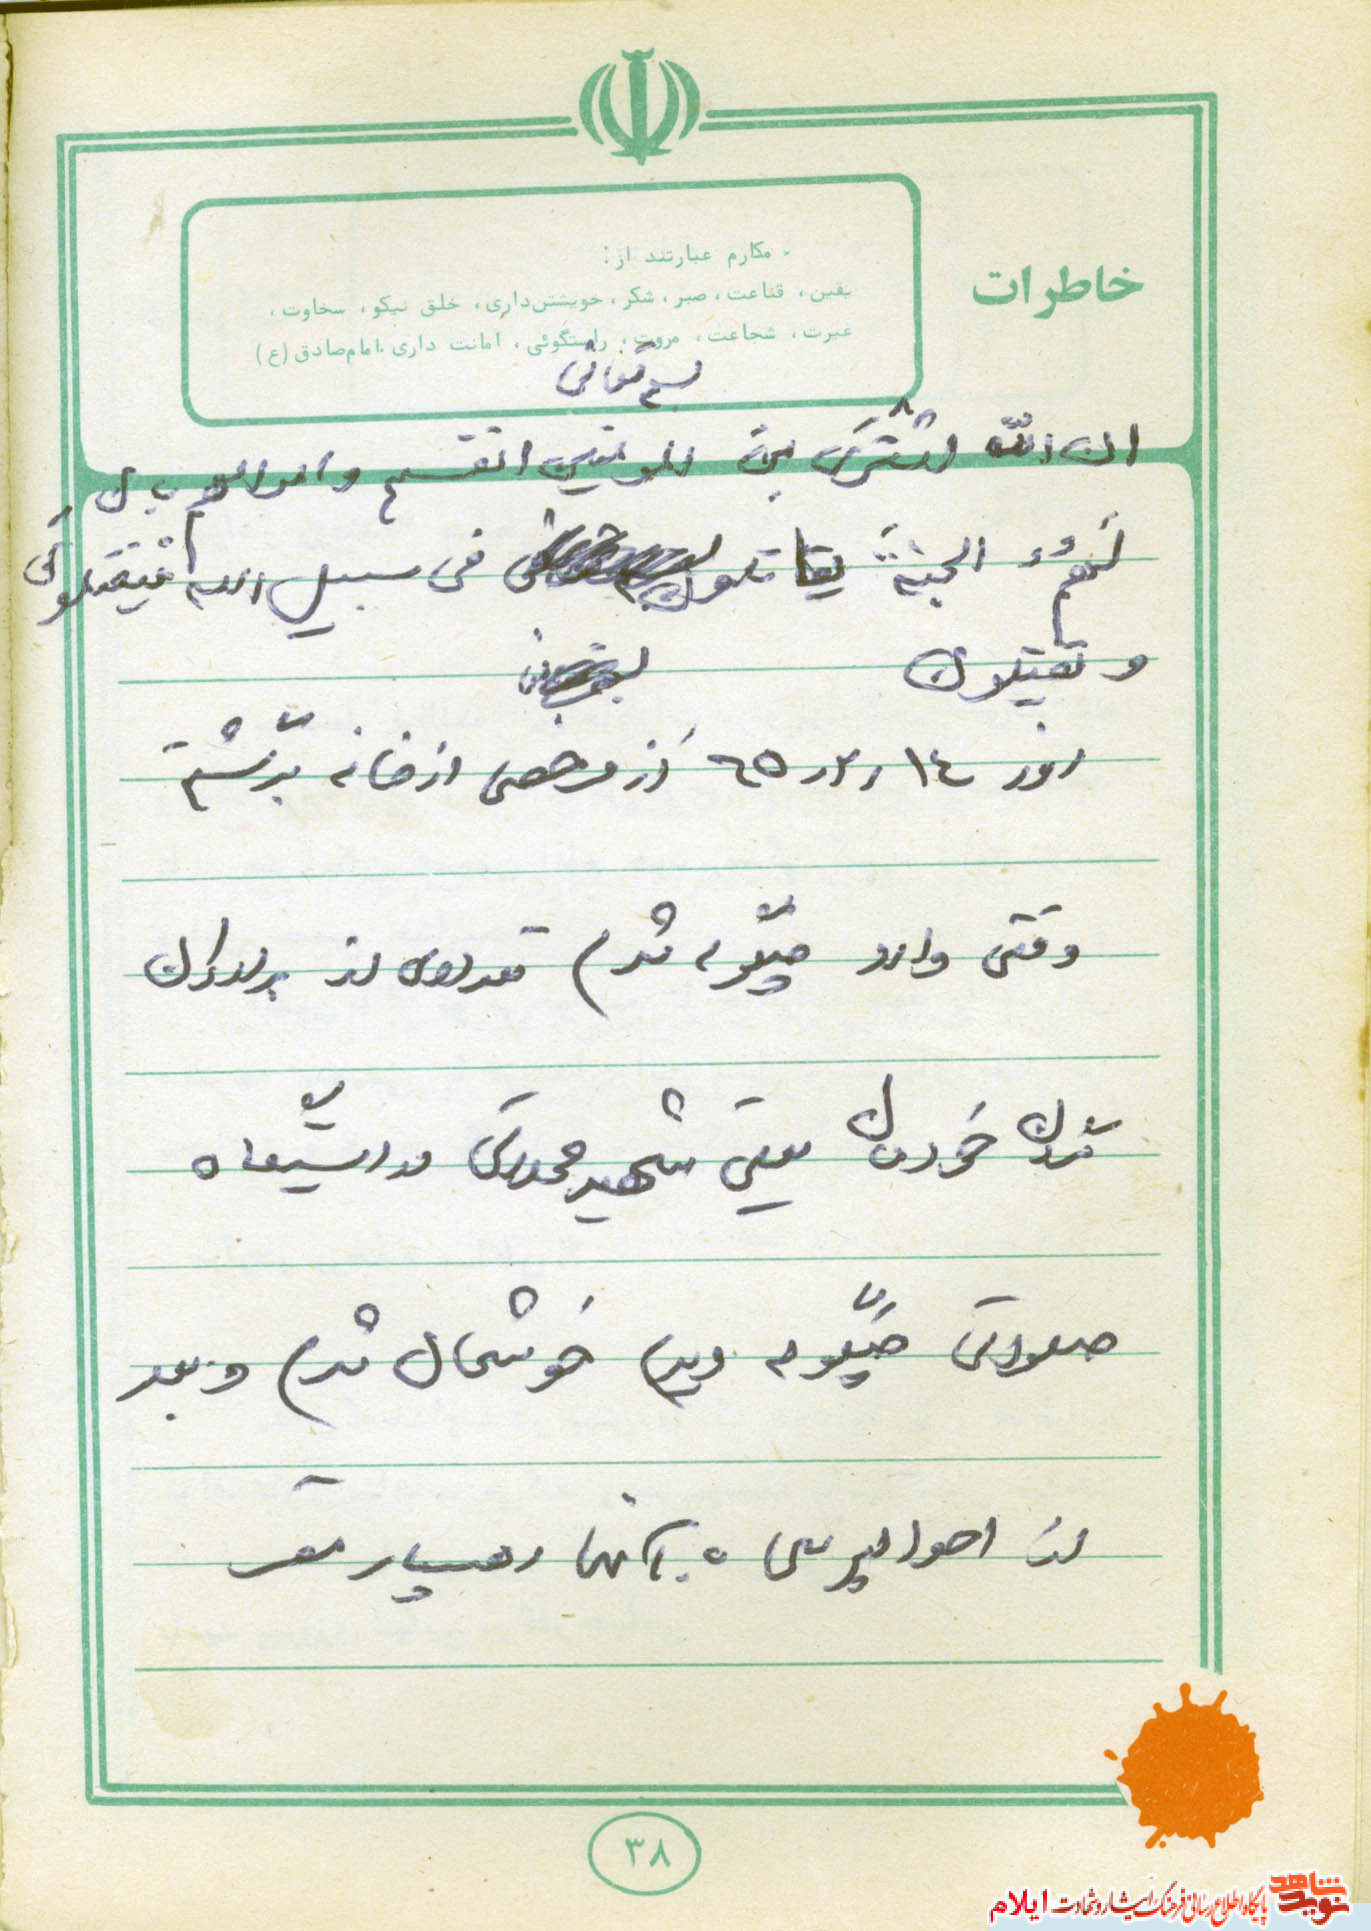 خاطرات
- مکارم عبارتند از:
یقین، قناعت، صبر، شکر، خویشتن‌داری، خلق نیکو، سخاوت،
عبرت، شجاعت، مروت، راستگوئی، امانت داری.امام‌صادق(ع)
بسم تعالی
ان الله اشتری من المومنین انفسهم و اموالهم بان
لَهُم الجنة یقاتلون فی سبیل الله فیقتلون
و یقتلون
روز ١٤ر٢ر٦٥ از مرخصی از خانه برگشتم
وقتی وارد چنگوله شدم تعدادی از برادران
گردان خودمان یعنی شهید محمدی در ایستگاه
صلواتی چنگوله دیدم خوشحال شدم و بعد
از احوالپرسی با آنها رهسپار مقر
٣٨
نوید شاهد
پایگاه اطلاع رسانی فرهنگ ایثار و شهادت ایلام